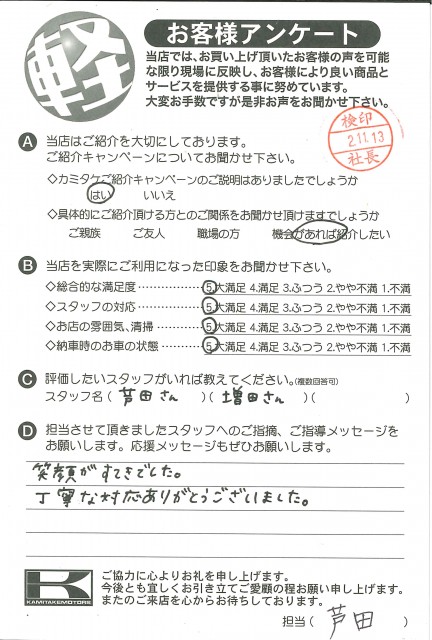 軽
お客様アンケート
当店では、お買い上げ頂いたお客様の声を可能
な限り現場に反映し、お客様により良い商品と
サービスを提供する事に努めています。
大変お手数ですが是非お声をお聞かせ下さい。
検印
2.11.13
社長
A 当店はご紹介を大切にしております。
ご紹介キャンペーンについてお聞かせ下さい。
◇カミタケご紹介キャンペーンのご説明はありましたでしょうか
はい いいえ
◇具体的にご紹介頂ける方とのご関係をお聞かせ頂けますでしょうか
ご親族 ご友人 職場の方 機会があれば紹介したい
B 当店を実際にご利用になった印象をお聞かせ下さい。
◇総合的な満足度……………… 5.大満足 4.満足 3.ふつう 2.やや不満 1.不満
◇スタッフの対応……………… 5.大満足 4.満足 3.ふつう 2.やや不満 1.不満
◇お店の雰囲気、清掃………… 5.大満足 4.満足 3.ふつう 2.やや不満 1.不満
◇納車時のお車の状態………… 5.大満足 4.満足 3.ふつう 2.やや不満 1.不満
C 評価したいスタッフがいれば教えてください。(複数回答可)
スタッフ名 ( 芦田さん )( 増田さん )( )
D 担当させて頂きましたスタッフへのご指摘、ご指導メッセージを
お願いします。応援メッセージもぜひお願いします。
笑顔がすてきでした。
丁寧な対応ありがとうございました。
K
KAMITAKEMOTORS
ご協力に心よりお礼を申し上げます。
今後とも宜しくお引き立てご愛顧の程お願い申し上げます。
またのご来店を心からお待ちしております。
担当 ( 芦田 )